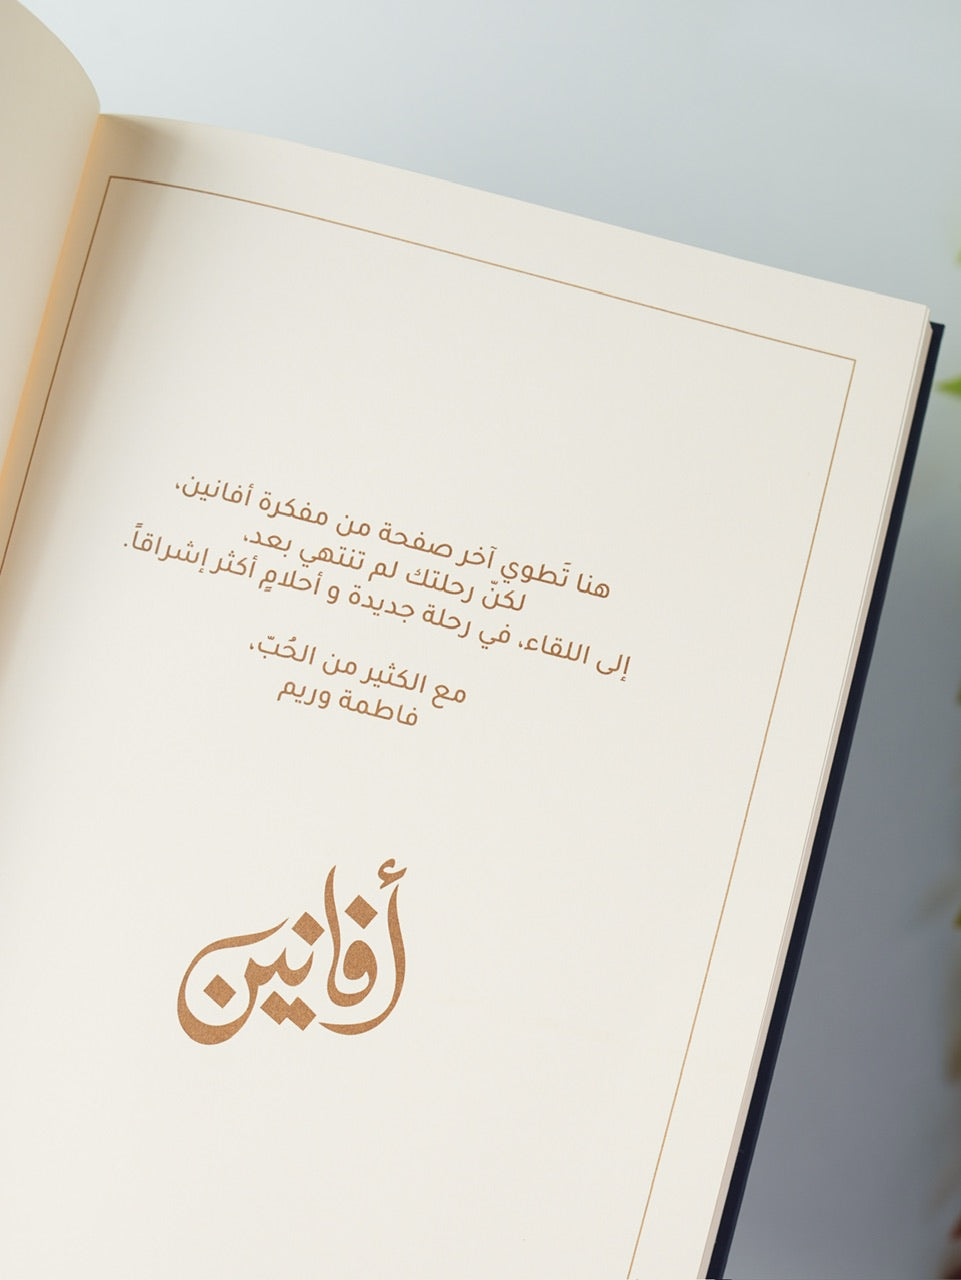 هنا تَطوي آخر صفحة من مفكرة أفانين،
لكنّ رحلتك لم تنتهي بعد،
إلى اللقاء، في رحلة جديدة و أحلامٍ أكثر إشراقاً.
مع الكثير من الحُبّ،
فاطمة وريم
أفانين